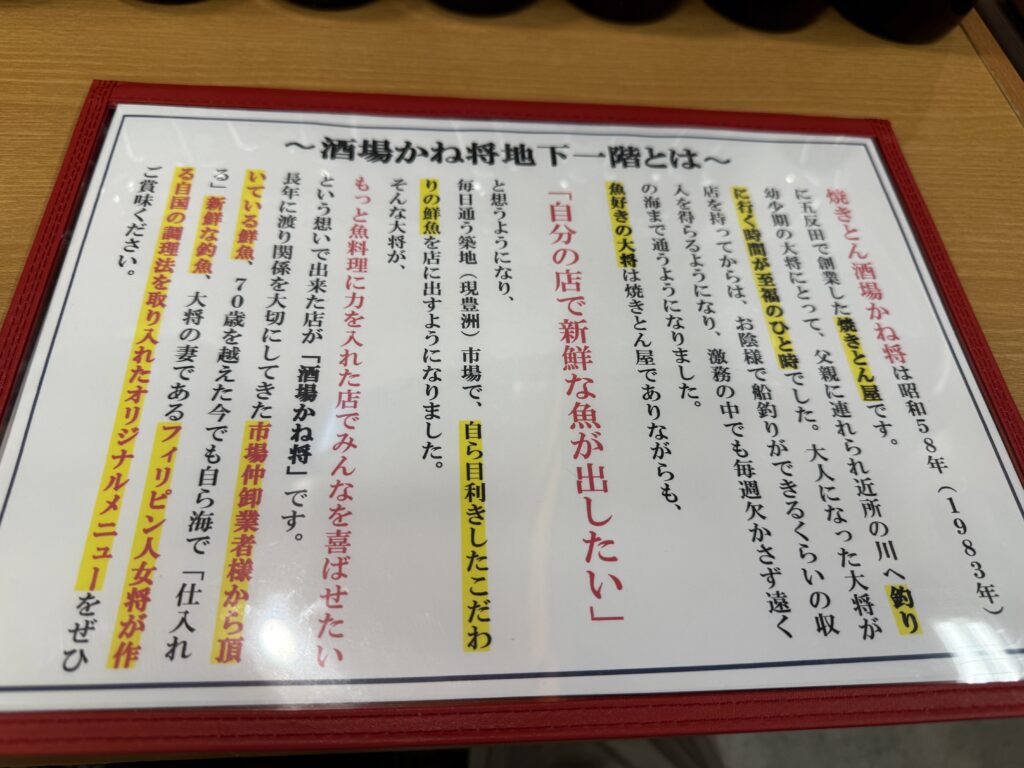 ～酒場かね将地下一階とは～
焼きとん酒場かね将は昭和58年（1983年）
に五反田で創業した焼きとん屋です。
幼少期の大将にとって、父親に連れられ近所の川へ釣り
に行く時間が至福のひと時でした。大人になった大将が
店を持ってからは、お陰様で船釣りができるくらいの収
人を得らるようになり、激務の中でも毎週欠かさず遠く
の海まで通うようになりました。
魚好きの大将は焼きとん屋でありながらも、
「自分の店で新鮮な魚が出したい」
と想うようになり、
毎日通う築地（現豊洲）市場で、自ら目利きしたこだわ
りの鮮魚を店に出すようになりました。
そんな大将が、
もっと魚料理に力を入れた店でみんなを喜ばせたい
という想いで出来た店が「酒場かね将」です。
長年に渡り関係を大切にしてきた市場仲卸業者様から頂
いている鮮魚、70歳を越えた今でも自ら海で「仕入れ
る」新鮮な釣魚、大将の妻であるフィリピン人女将が作
る自国の調理法を取り入れたオリジナルメニューをぜひ
ご賞味ください。